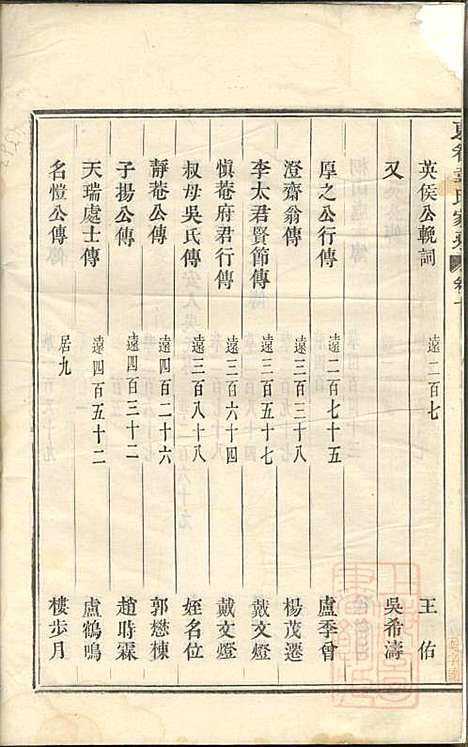 英侯公輓詞 遠二百七 王佑
又 吳希濤
厚之公行傳 遠二百七十五 盧季曾
澄齋翁傳 遠三百三十八 楊茂遷
李太君賢節傳 遠三百五十七 戴文燈
慎菴府君行傳 遠三百六十四 戴文燈
叔母吳氏傳 遠三百八十八 姪名位
靜菴公傳 遠四百二十六 郭懋棟
子揚公傳 遠四百三十二 趙時霖
天瑞處士傳 遠四百五十二 盧鶴鳴
名愷公傳 居九 樓步月